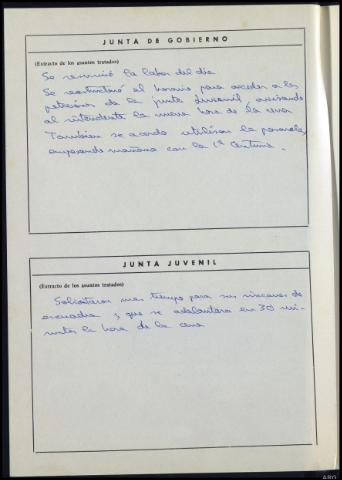 JUNTA DE GOBIERNO
(Extracto de los asuntos tratados)
Se resumió la labor del día
Se reestructuró el horario para acceder a las
peticiones de la junta Juvenil, avisando
al intendente la nueva hora de la cena
Tambien se acordo utilizar la pasarela,
empezando mañana con la 1ª Centuria.
JUNTA JUVENIL
(Extracto de los asuntos tratados)
Solicitaron mas tiempo para sus rincones de
escuadra y que se adelantara en 30 mi-
nutos la hora de la cena